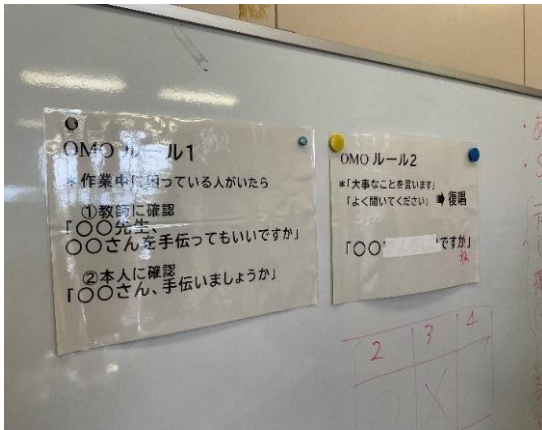 OMO ルール1
*作業中に困っている人がいたら
①教師に確認
「〇〇先生、
〇〇さんを手伝ってもいいですか」
②本人に確認
「〇〇さん、手伝いましょうか」
OMO ルール2
*「大事なことを言います」
「よく聞いてください」➡復唱
「〇〇
ですか」
ね
2 3 4